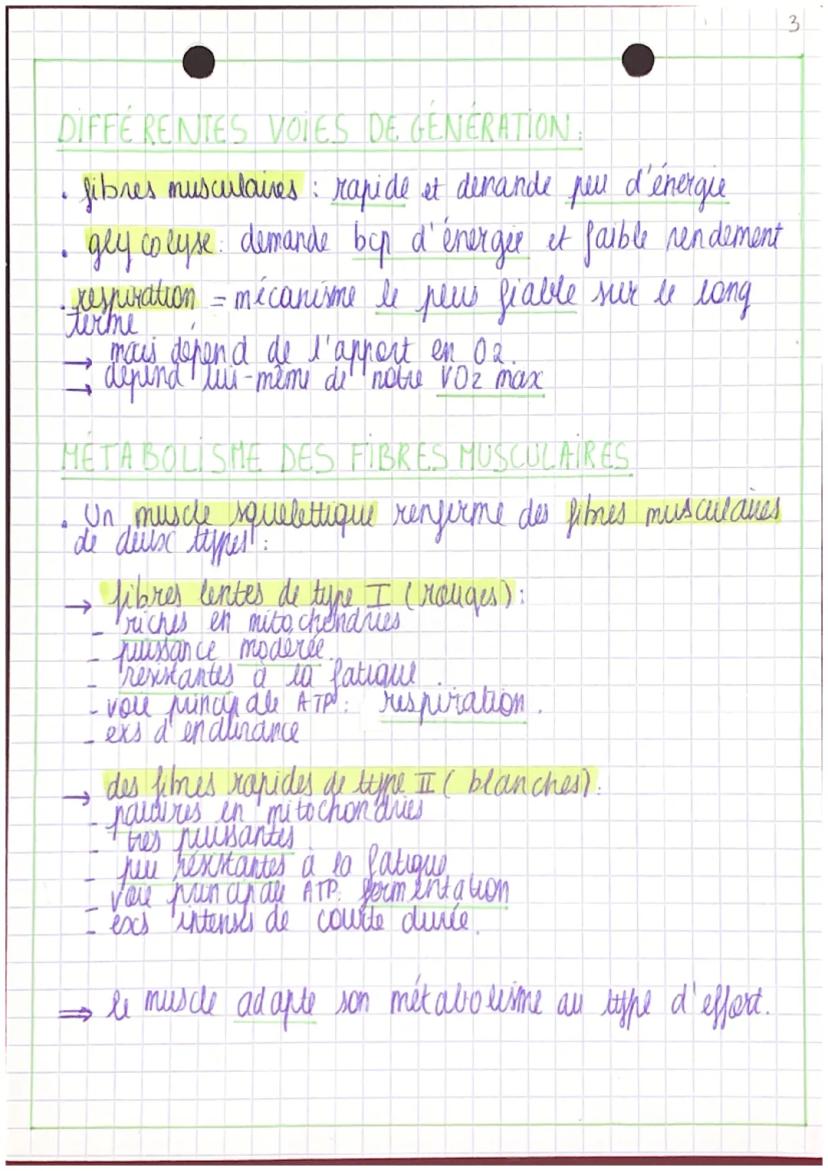 3
DIFFÉRENTES VOIES DE GÉNÉRATION :
. fibres musculaires : rapide et demande peu d'énergie
. glycolyse : demande bcp d'énergie et faible rendement
. respiration = mécanisme le plus fiable sur le long
terme
→ mais dépend de l'apport en O2.
→ dépend lui-même de notre VO2 max
MÉTABOLISME DES FIBRES MUSCULAIRES
. Un muscle squelettique renferme des fibres musculaires
de deux types :
→ fibres lentes de type I (rouges) :
- riches en mitochondries
- puissance modérée.
- résistantes à la fatigue.
- voie principale ATP : respiration.
- exs d'endurance
→ des fibres rapides de type II (blanches) :
- pauvres en mitochondries
- très puissantes
- peu résistantes à la fatigue
- voie principale ATP : fermentation
- exs intenses de courte durée.
⇒ le muscle adapte son métabolisme au type d'effort.